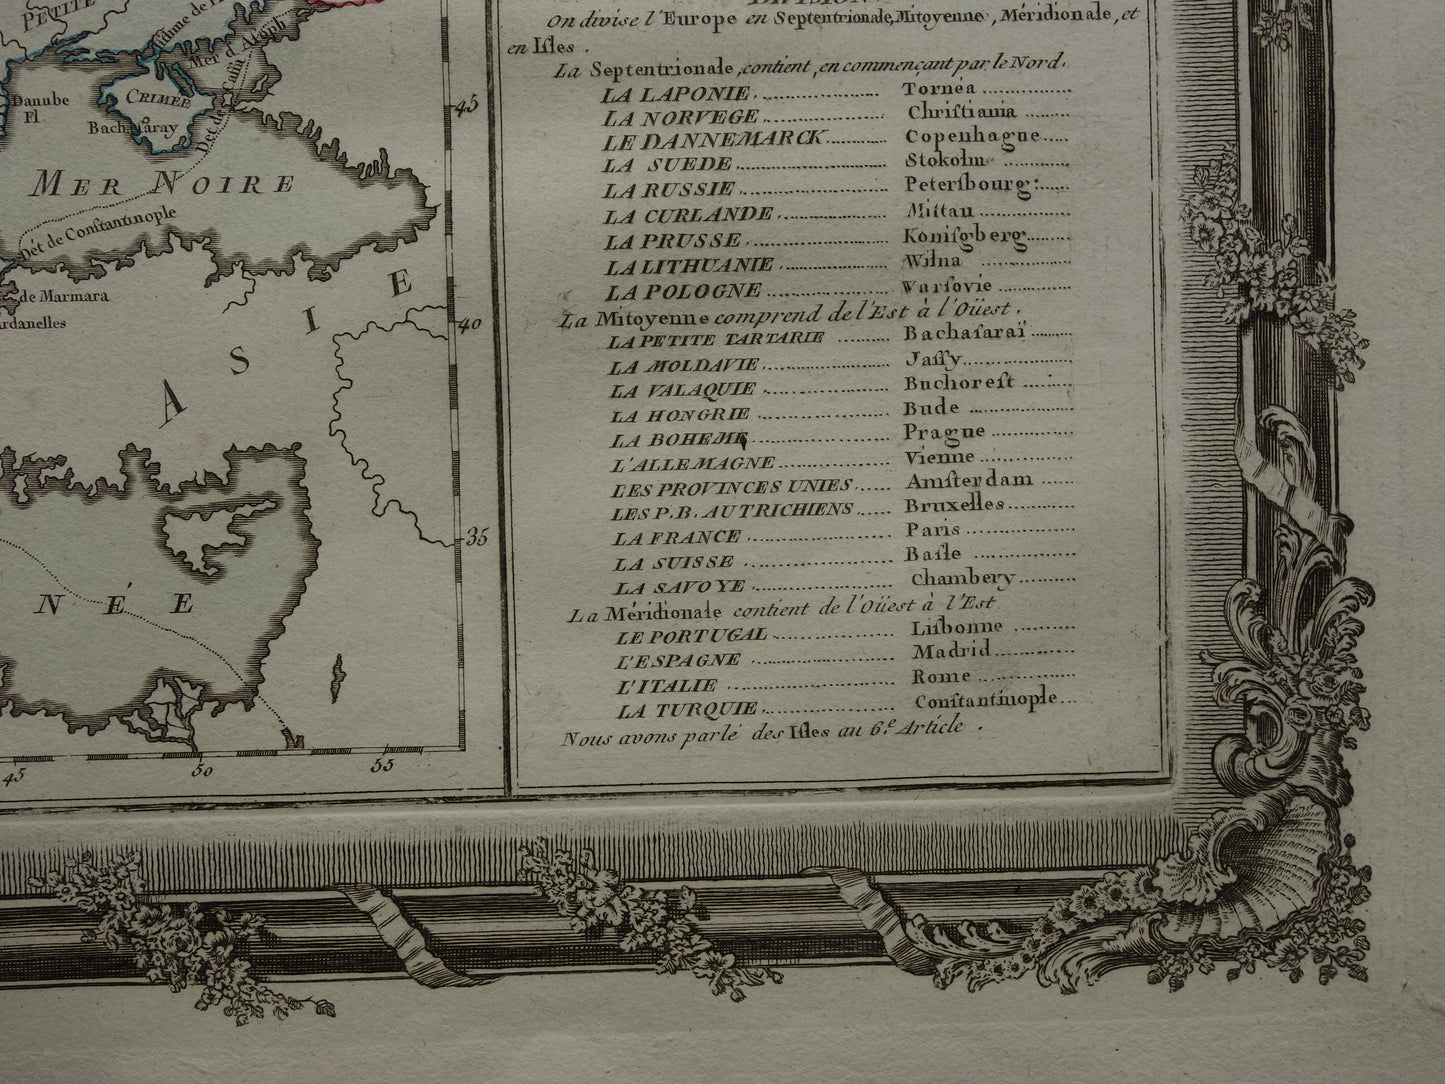 PETITE
Isthme de
Mer d'Azoph
Caffa
Dét de
Danube
Fl.
CRIMÉE
Bachaſaray
MER NOIRE
Dét de Conſtantinople
de Marmara
ardanelles
ASIE
NÉE
45
40
35
45
50
55
On diviſe l'Europe en Septentrionale, Mitoyenne, Méridionale, et
en Iſles.
La Septentrionale, contient, en commençant par le Nord.
LA LAPONIE. Tornéa
LA NORVEGE Chriſtiania
LE DANNEMARCK Copenhague
LA SUEDE Stokolm
LA RUSSIE Peterſbourg:
LA CURLANDE Mittau
LA PRUSSE Köniſgberg
LA LITHUANIE Wilna
LA POLOGNE Warſovie
La Mitoyenne comprend de l'Est à l'Oüest.
LA PETITE TARTARIE Bachaſaraï
LA MOLDAVIE Jaſſy
LA VALAQUIE Buchoreſt
LA HONGRIE Bude
LA BOHEME Prague
L'ALLEMAGNE Vienne
LES PROVINCES UNIES Amſterdam
LES P.B. AUTRICHIENS Bruxelles
LA FRANCE Paris
LA SUISSE Baſle
LA SAVOYE Chambery
La Méridionale contient de l'Oüest à l'Est
LE PORTUGAL Liſbonne
L'ESPAGNE Madrid
L'ITALIE Rome
LA TURQUIE Conſtantinople
Nous avons parlé des Iſles au 6.e Article.